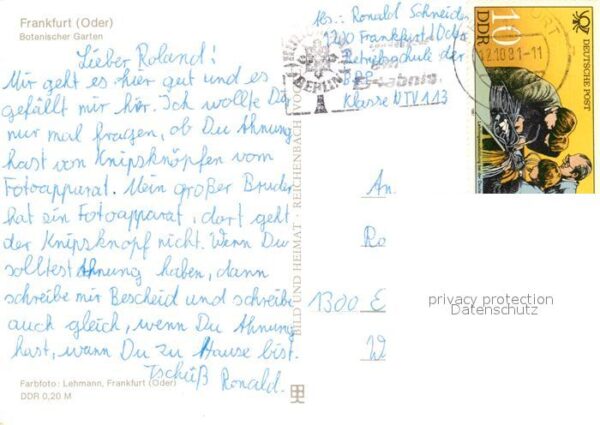 Frankfurt (Oder)
Botanischer Garten
Lieber Roland!
Mir geht es hier gut und es
gefällt mir hir. Ich wollte Dig
nur mal fragen, ob Du Ahnung
hast von Knipsknöpfen vom
Fotoapparat. Mein großer Bruder
hat ein Fotoapparat, dort geht
der Knipsknopf nicht. Wenn Du
solltest Ahnung haben, dann
schreibe mir Bescheid und schreibe
auch gleich, wenn Du Ahnung
hast, wann Du zu Hause bist.
Tschüß Ronald.
Farbfoto: Lehmann, Frankfurt (Oder)
DDR 0,20 M
BILD UND HEIMAT · REICHENBACH
Abs.: Ronald Schneider
1200 Frankfurt/Oder
Betriebsschule der
Klasse NTV 113
BERLIN
Erlebnis
10
DDR
DEUTSCHE POST
12.10.81-11
An
Ro
1300 E
W
privacy protection
Datenschutz